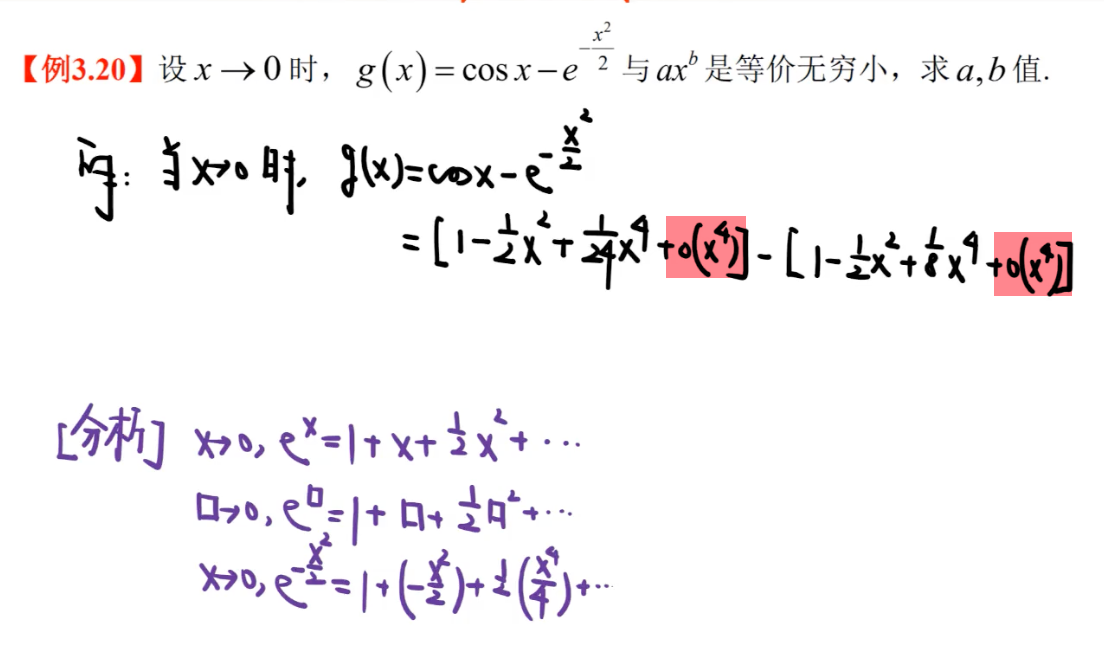 【例3.20】设 x → 0 时，g(x) = cos x − e^{−x²/2} 与 ax^b 是等价无穷小，求 a, b 值.
解: 当 x→0 时, g(x)=cosx−e^{−x²/2}
=[1−½x²+1/24x⁴+o(x⁴)]−[1−½x²+⅛x⁴+o(x⁴)]
[分析] x→0, e^x=1+x+½x²+⋯
□→0, e^□=1+□+½□²+⋯
x→0, e^{−x²/2}=1+(−x²/2)+½(x⁴/4)+⋯